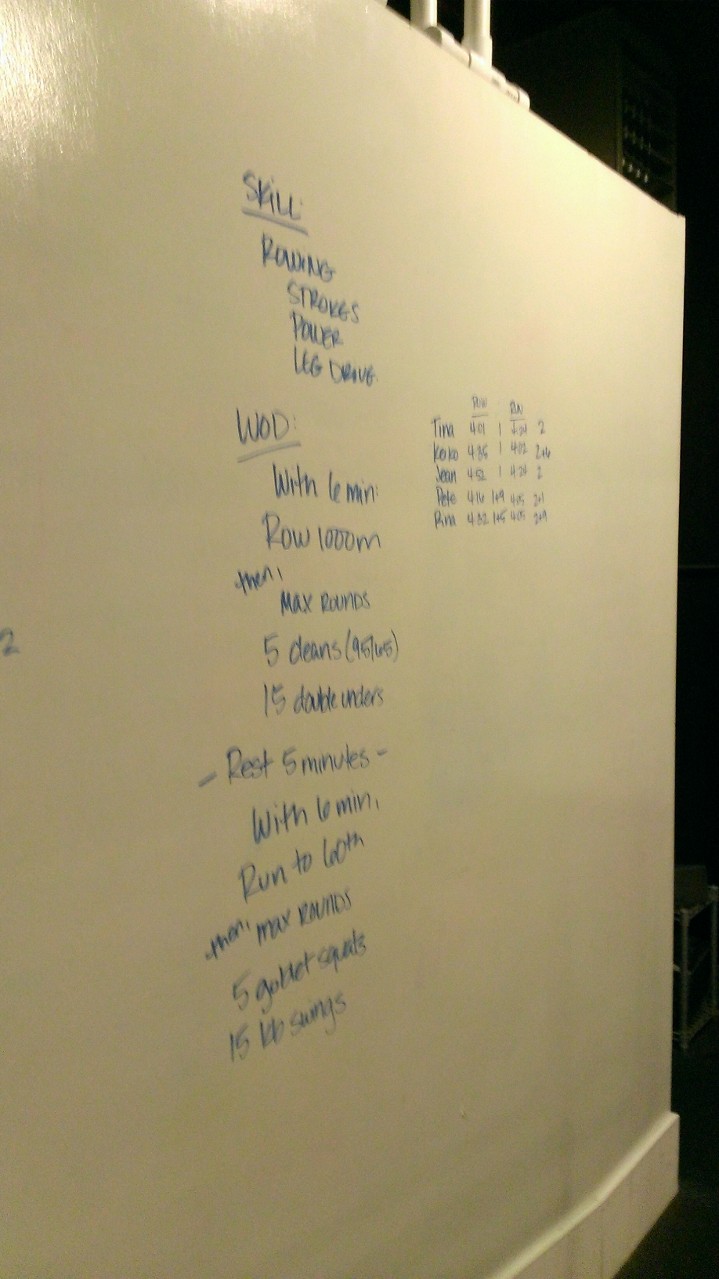 SKILL:
ROWING
STROKES
POWER
LEG DRIVE
WOD:
With 6 min:
Row 1000m
then,
MAX ROUNDS
5 cleans (95/65)
15 double unders
- Rest 5 minutes -
With 6 min,
Run to 60th
then, max ROUNDS
5 goblet squats
15 kb swings
ROW RUN
Tina 401 1 2
Keiko 436 1 402 2+6
Jean 452 1 424 2
Pete 416 1+9 405 2+1
Rim 432 1+5 405 2+9
2